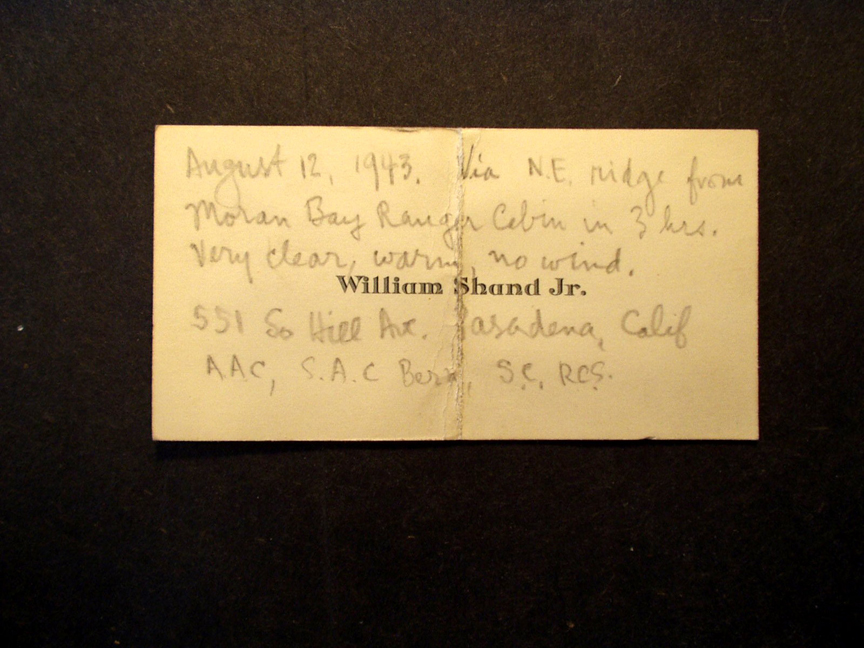 August 12, 1943. Via N.E. ridge from
Moran Bay Ranger Cabin in 3 hrs.
Very clear, warm, no wind.
William Shand Jr.
551 So Hill Ave. Pasadena, Calif
AAC, S.A.C Bern, S.C, RCS.